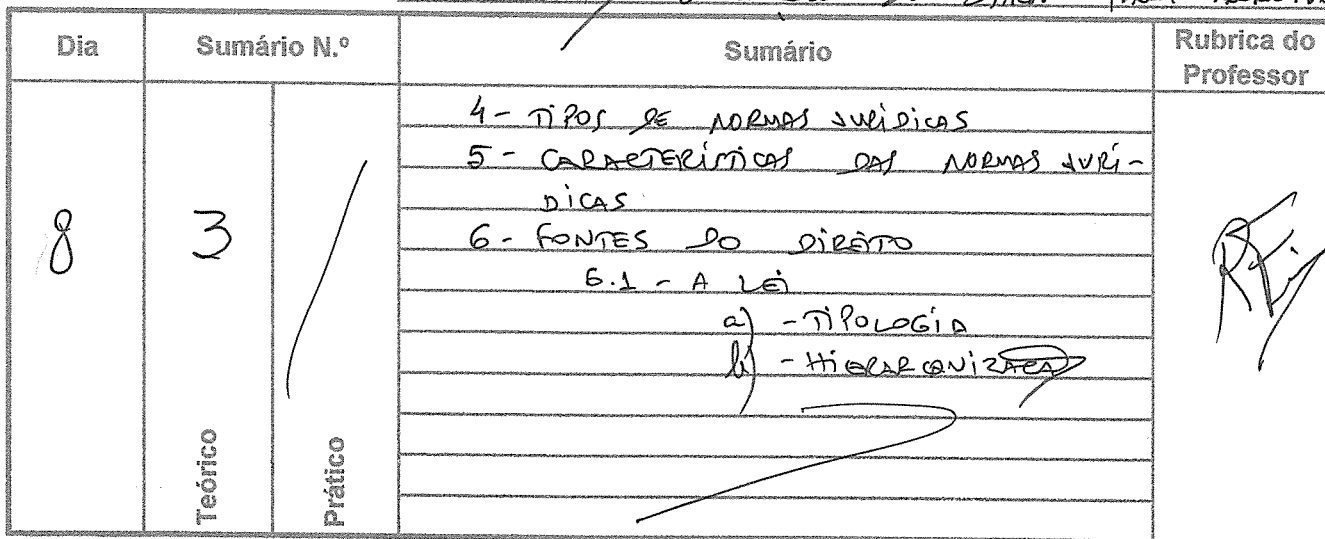 Dia
Sumário N.º
Sumário
Rubrica do
Professor
8
3
Teórico
Prático
4 - TIPOS DE NORMAS JURÍDICAS
5 - CARACTERÍSTICAS DAS NORMAS JURÍ-
DICAS
6 - FONTES DO DIREITO
6.1 - A LEI
a) - TIPOLOGIA
b) -